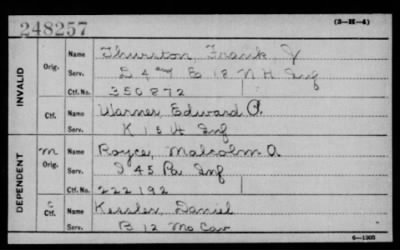 248257
(3-H-4)
INVALID
Orig. Name Thurston, Frank J
Serv. D 4 & E 18 N H Inf
Ctf. No. 350872
Ctf. Name Warner, Edward P.
Serv. K 15 Inf
DEPENDENT
M Orig. Name Royce, Malcolm A.
Serv. I 45 Pa Inf
Ctf. No. 222192
C Ctf. Name Kessler, Daniel
Serv. B 12 Mo Cav
6—1908